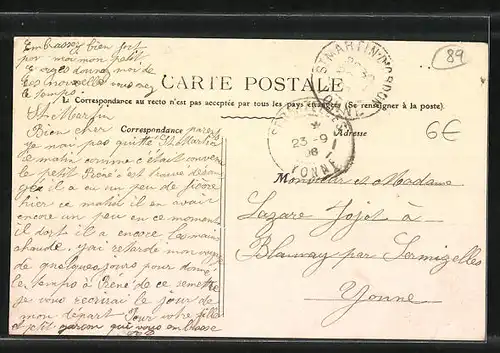 Embrassez bien fort
pour moi mon petit
donnez moi de
ses nouvelles
le temps.
CARTE POSTALE
La Correspondance au recto n'est pas acceptée par tous les pays étrangers (Se renseigner à la poste).
Correspondance
Adresse
St Martin
Bien cher parents
je n'ai pas quitté St Martin
ce matin comme c'était convenu
le petit René s'est trouvé
il a eu un peu de fièvre
hier ce matin il en avait
encore un peu en ce moment
il dort il a encore les mains
chaudes j'ai retardé mon voyage
de quelques jours pour donné
le temps à René de ce remettre
je vous recrirai le jour de
mon départ Votre fille
et petit garçon qui vous embrasse
ST MARTIN
23-9
08
YONNE
89
6€
Monsieur et Madame
Lazare Jojot à
Blannay par Sermizelles
Yonne